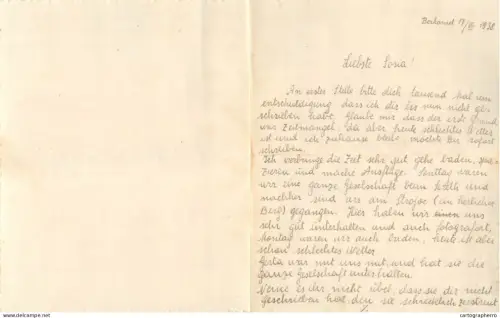 1938
Liebste Sona!
An erster Stelle bitte dich tausend mal um
entschuldigung dass ich dir bis nun nicht ges
schrieben habe. Glaube mir dass der erste Grund
war Zeitmangel, da aber heute schlechtes Wetter
ist und ich zuhause bleibe, möchte Dir sofort
schreiben.
Ich verbringe die Zeit sehr gut gehe baden, spa
zieren und mache Ausflüge. Sonttag waren
wir eine ganze Geselschaft beim
nachher sind wir am (ein herlicher
Berg) gegangen. Hier haben wir uns
sehr gut unterhalten und auch fotografiert.
Montag waren wir auch baden, heute ist aber
schon schlechtes Wetter.
Gerta war mit uns mit und hat sie die
ganze Geselschaft unterhalten.
es dir nicht übel, dass sie dir nicht
geschrieben hat den sie schrecklich zerstreut
cartographerro